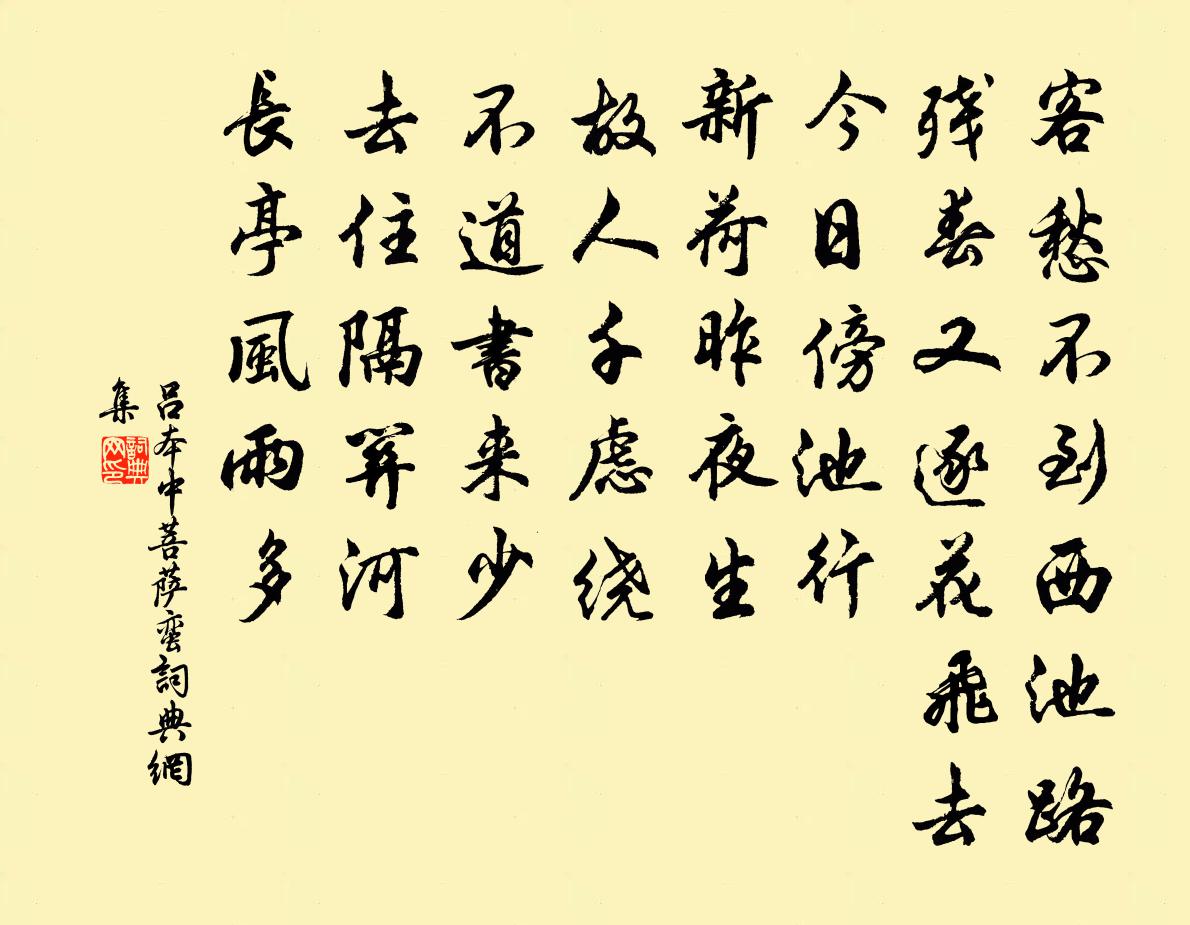 客愁不到西池路
残春又逐花飛去
今日傍池行
新荷昨夜生
故人千慮绕
不道書来少
去住隔關河
長亭風雨多
吕本中菩萨蛮詞典網
集
詞典網印